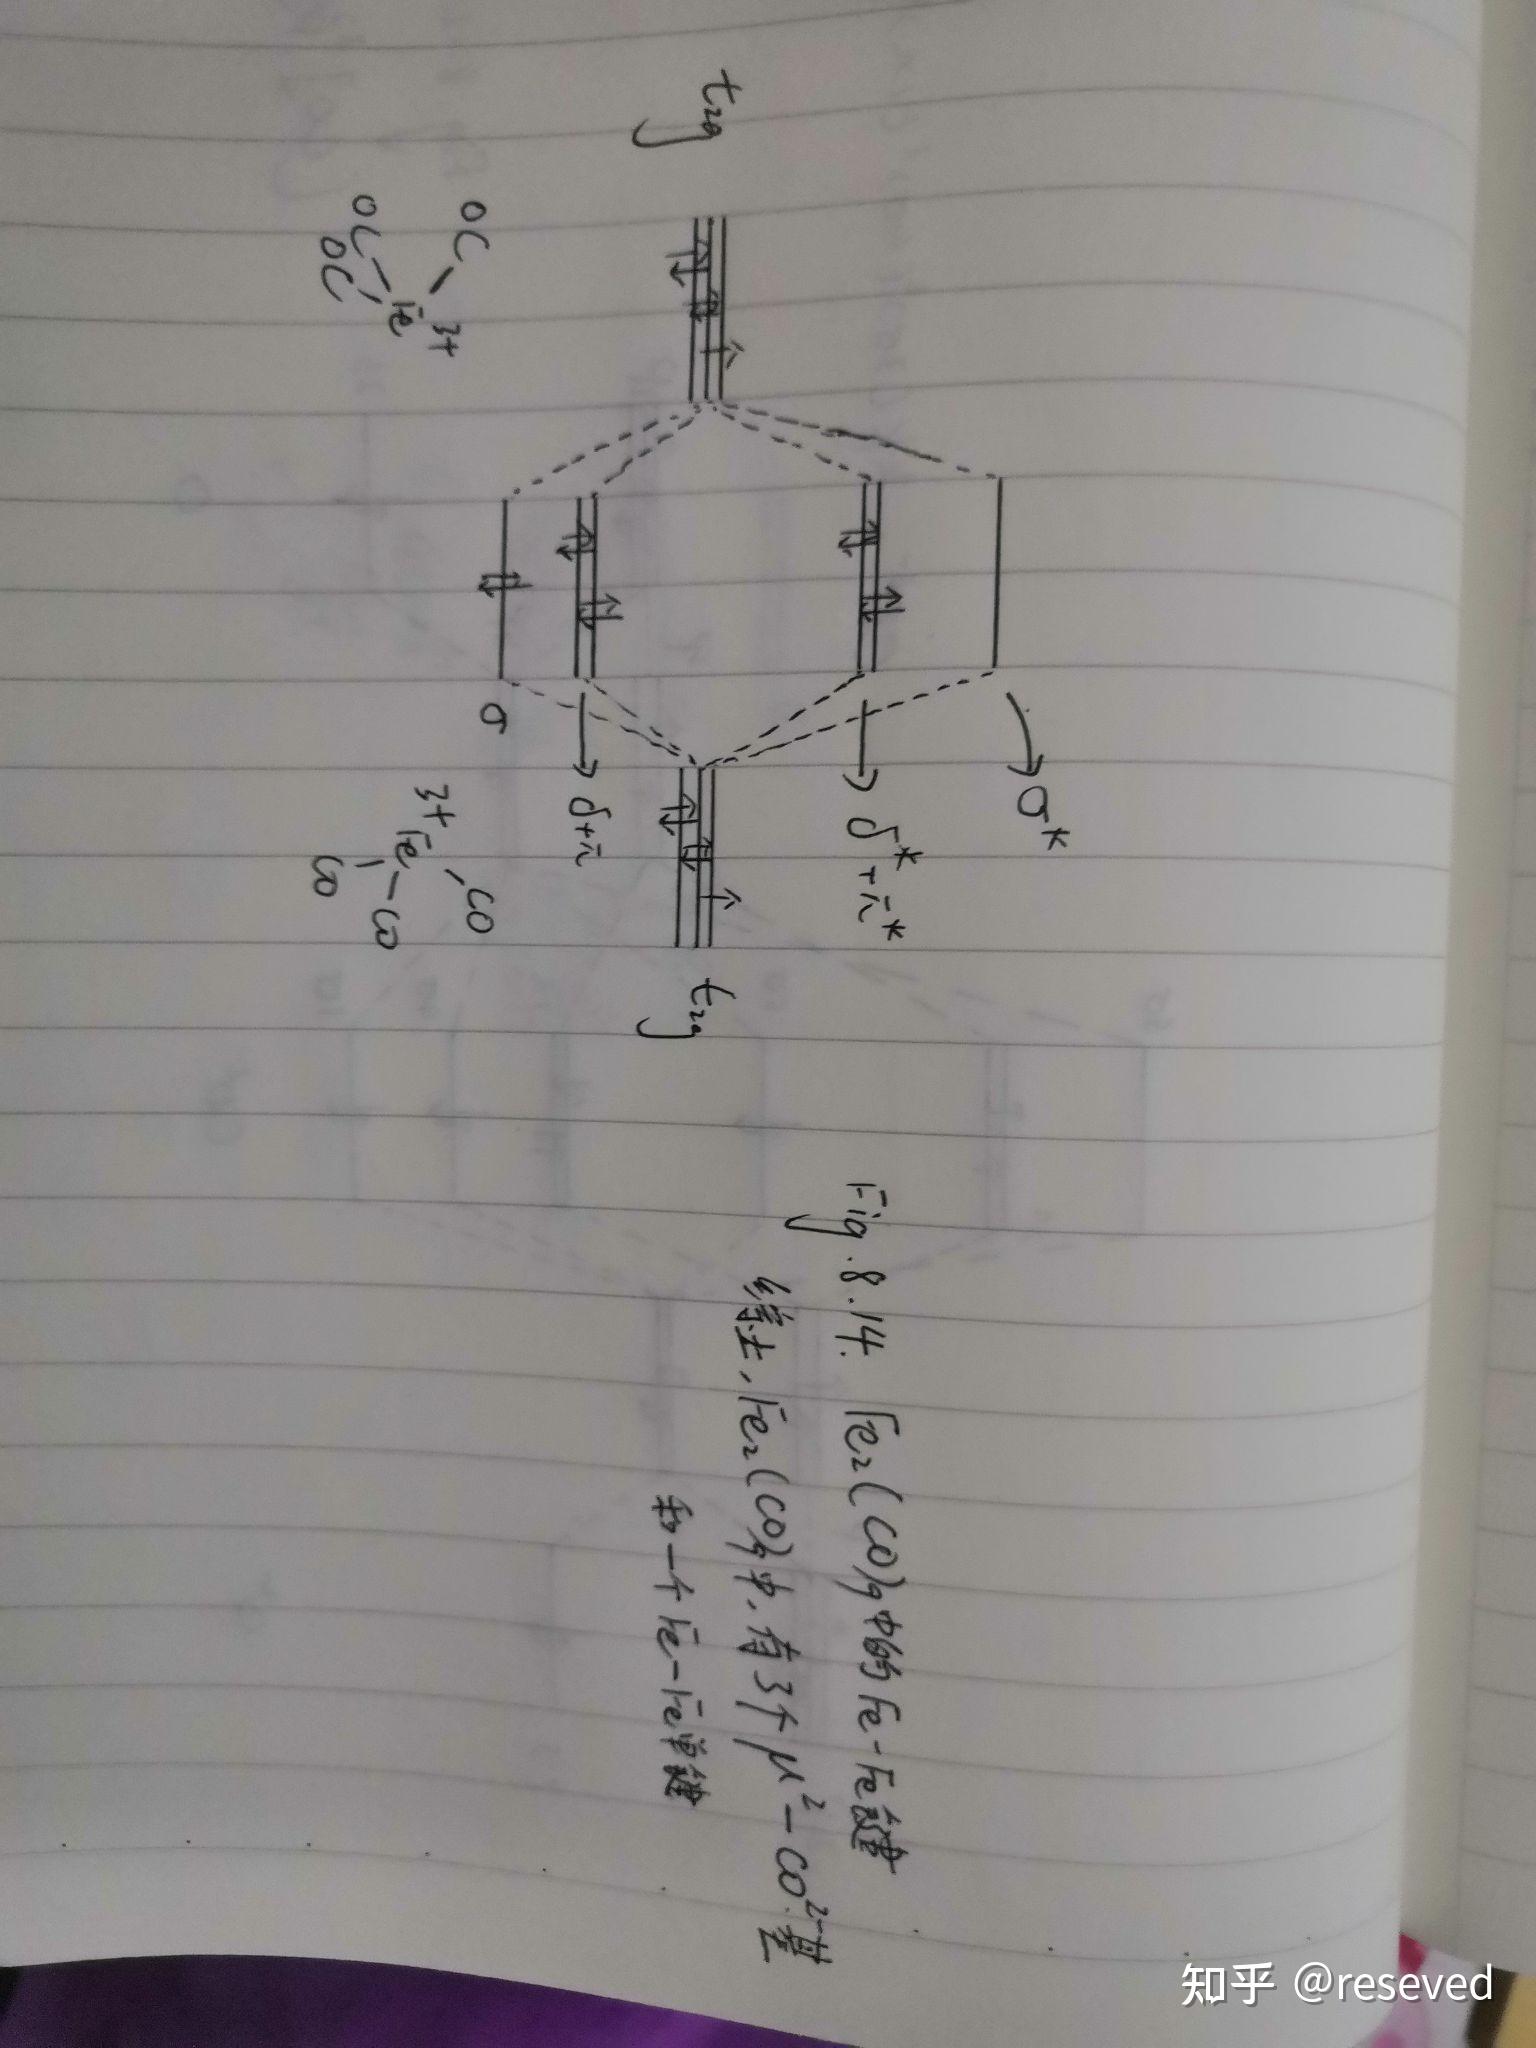 t2g
σ*
δ*+π*
δ+π
σ
t2g
OC
OC
OC
Fe
3+
3+
Fe
CO
CO
CO
Fig.8.14. Fe2(CO)9中的Fe-Fe键
综上,Fe2(CO)9中,有3个μ²-CO²⁻基
和一个Fe-Fe单键
知乎 @reseved